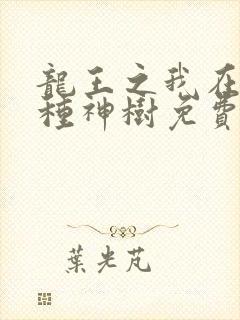 龍王之我在
種神樹免費
葉光芃